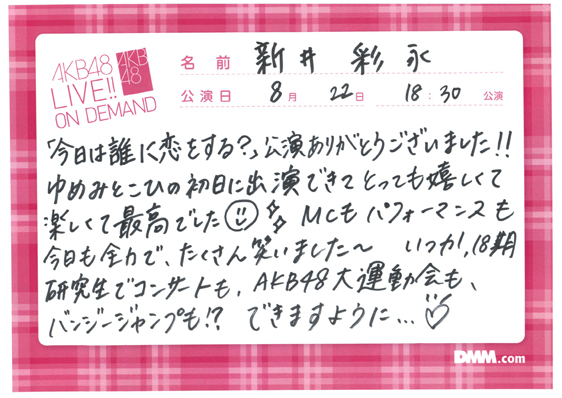 AKB48
LIVE!!
ON DEMAND
AKB
48
名前 新井 彩永
公演日 8月 22日 18:30 公演
「今日は誰に恋をする?」公演ありがとうございました!!
ゆめみとこひの初日に出演できてとっても嬉しくて
楽しくて最高でした MCもパフォーマンスも
今日も全力で、たくさん笑いました〜 いつか、18期
研究生でコンサートも、AKB48大運動会も、
バンジージャンプも!? できますように...
DMM.com